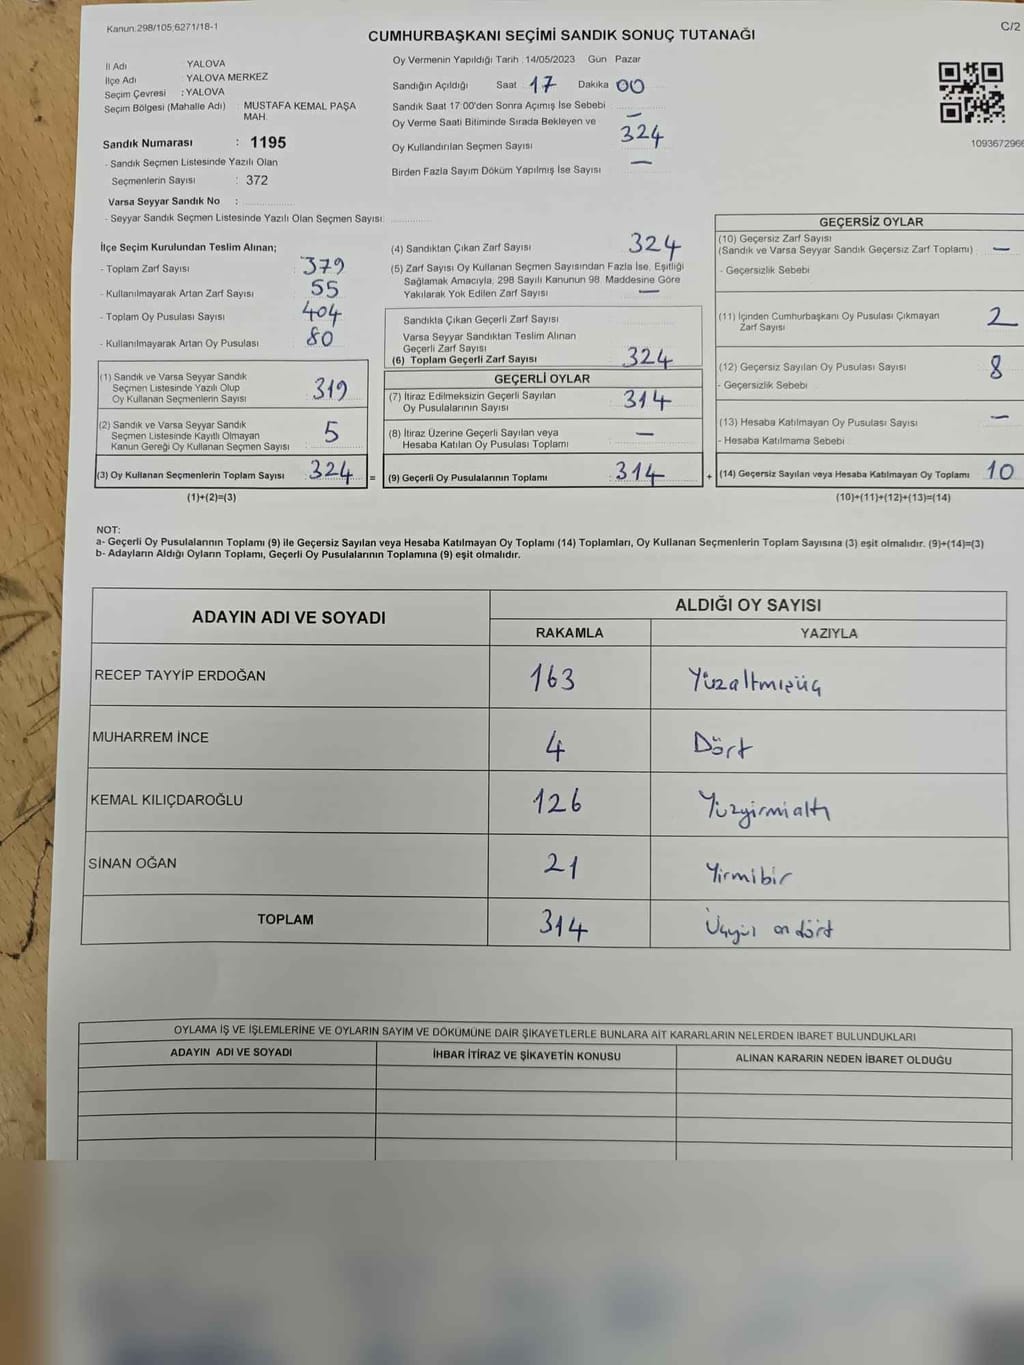 Kanun:298/105,6271/18-1
C/2
CUMHURBAŞKANI SEÇİMİ SANDIK SONUÇ TUTANAĞI
İl Adı YALOVA
İlçe Adı YALOVA MERKEZ
Seçim Çevresi : YALOVA
Seçim Bölgesi (Mahalle Adı) : MUSTAFA KEMAL PAŞA MAH.
Sandık Numarası : 1195
- Sandık Seçmen Listesinde Yazılı Olan
Seçmenlerin Sayısı : 372
Varsa Seyyar Sandık No :
- Seyyar Sandık Seçmen Listesinde Yazılı Olan Seçmen Sayısı:
Oy Vermenin Yapıldığı Tarih :14/05/2023 Gün Pazar
Sandığın Açıldığı Saat 17 Dakika 00
Sandık Saat 17:00'den Sonra Açımış İse Sebebi
Oy Verme Saati Bitiminde Sırada Bekleyen ve —
Oy Kullandırılan Seçmen Sayısı 324
Birden Fazla Sayım Döküm Yapılmış İse Sayısı —
1093672966
İlçe Seçim Kurulundan Teslim Alınan;
- Toplam Zarf Sayısı 379
- Kullanılmayarak Artan Zarf Sayısı 55
- Toplam Oy Pusulası Sayısı 404
- Kullanılmayarak Artan Oy Pusulası 80
(1) Sandık ve Varsa Seyyar Sandık
Seçmen Listesinde Yazılı Olup
Oy Kullanan Seçmenlerin Sayısı 319
(2) Sandık ve Varsa Seyyar Sandık
Seçmen Listesinde Kayıtlı Olmayan
Kanun Gereği Oy Kullanan Seçmen Sayısı 5
(3) Oy Kullanan Seçmenlerin Toplam Sayısı 324 =
(1)+(2)=(3)
(4) Sandıktan Çıkan Zarf Sayısı 324
(5) Zarf Sayısı Oy Kullanan Seçmen Sayısından Fazla İse, Eşitliği
Sağlamak Amacıyla; 298 Sayılı Kanunun 98. Maddesine Göre
Yakılarak Yok Edilen Zarf Sayısı —
Sandıkta Çıkan Geçerli Zarf Sayısı
Varsa Seyyar Sandıktan Teslim Alınan
Geçerli Zarf Sayısı
(6) Toplam Geçerli Zarf Sayısı 324
GEÇERLİ OYLAR
(7) İtiraz Edilmeksizin Geçerli Sayılan
Oy Pusulalarının Sayısı 314
(8) İtiraz Üzerine Geçerli Sayılan veya
Hesaba Katılan Oy Pusulası Toplamı —
(9) Geçerli Oy Pusulalarının Toplamı 314 +
GEÇERSİZ OYLAR
(10) Geçersiz Zarf Sayısı
(Sandık ve Varsa Seyyar Sandık Geçersiz Zarf Toplamı) —
- Geçersizlik Sebebi
(11) İçinden Cumhurbaşkanı Oy Pusulası Çıkmayan
Zarf Sayısı 2
(12) Geçersiz Sayılan Oy Pusulası Sayısı 8
- Geçersizlik Sebebi
(13) Hesaba Katılmayan Oy Pusulası Sayısı —
- Hesaba Katılmama Sebebi
(14) Geçersiz Sayılan veya Hesaba Katılmayan Oy Toplamı 10
(10)+(11)+(12)+(13)=(14)
NOT:
a- Geçerli Oy Pusulalarının Toplamı (9) ile Geçersiz Sayılan veya Hesaba Katılmayan Oy Toplamı (14) Toplamları, Oy Kullanan Seçmenlerin Toplam Sayısına (3) eşit olmalıdır. (9)+(14)=(3)
b- Adayların Aldığı Oyların Toplamı, Geçerli Oy Pusulalarının Toplamına (9) eşit olmalıdır.
ADAYIN ADI VE SOYADI ALDIĞI OY SAYISI
RAKAMLA YAZIYLA
RECEP TAYYİP ERDOĞAN 163 Yüzaltmışüç
MUHARREM İNCE 4 Dört
KEMAL KILIÇDAROĞLU 126 Yüzyirmialtı
SİNAN OĞAN 21 Yirmibir
TOPLAM 314 Üçyüz ondört
OYLAMA İŞ VE İŞLEMLERİNE VE OYLARIN SAYIM VE DÖKÜMÜNE DAİR ŞİKAYETLERLE BUNLARA AİT KARARLARIN NELERDEN İBARET BULUNDUKLARI
ADAYIN ADI VE SOYADI İHBAR İTİRAZ VE ŞİKAYETİN KONUSU ALINAN KARARIN NEDEN İBARET OLDUĞU